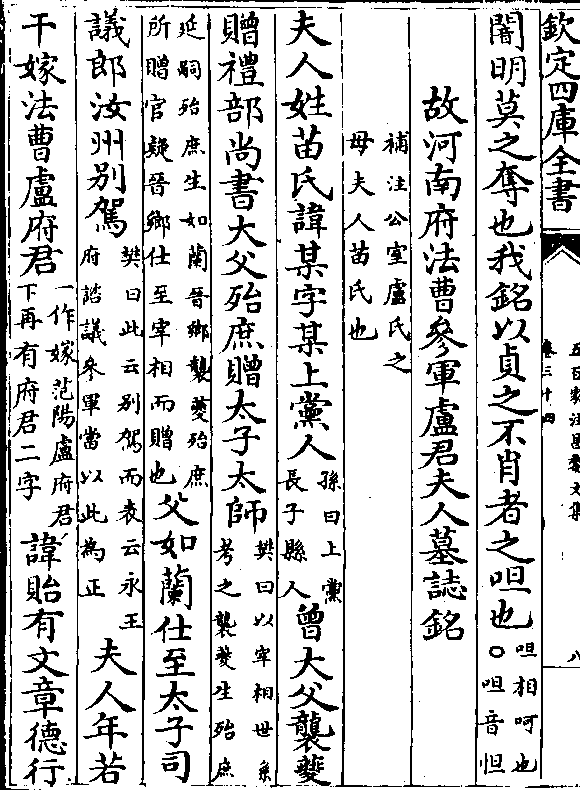 欽定四庫全書
五百家注昌黎文集
卷三十四
八
闇明莫之奪也我銘以貞之不肖者之呾也呾相呵也〇呾音怛
故河南府法曹參軍盧君夫人墓誌銘
補注公室盧氏之
母夫人苗氏也
夫人姓苗氏諱某字某上黨人孫曰上黨長子縣人曾大父襲夔
贈禮部尚書大父殆庶贈太子太師樊曰以宰相世系考之襲夔生殆庶
延嗣殆庶生如蘭晉卿襲夔殆庶所贈官疑晉卿仕至宰相而贈也父如蘭仕至太子司
議郎汝州別駕樊曰此云別駕而表云永王府諮議參軍當以此為正夫人年若
干嫁法曹盧府君一作嫁范陽盧府君下再有府君二字諱貽有文章德行